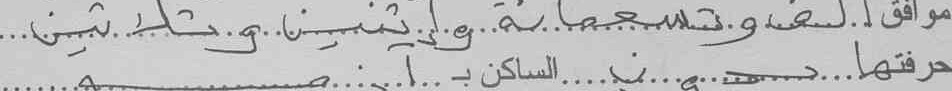 موافق ا لف و تسعمائة و إثنين و ثلاثين
حرفتها بدون الساكن بـ